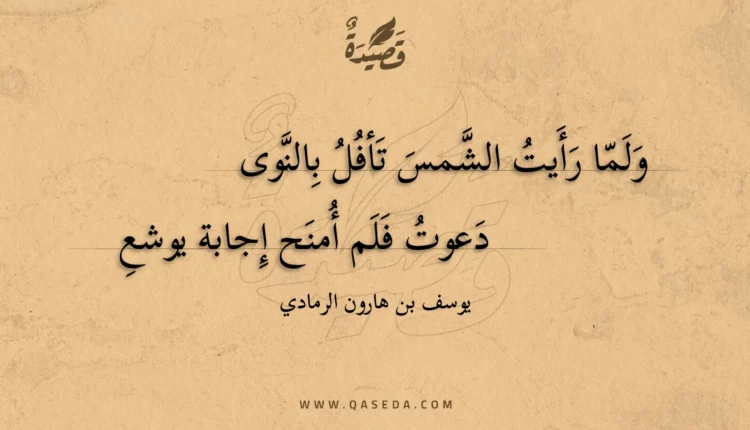 قَصِيدَةٌ
وَلَمّا رَأَيتُ الشَّمسَ تَأفُلُ بِالنَّوى
دَعوتُ فَلَم أُمنَح إِجابة يوشعِ
يوسف بن هارون الرمادي
WWW.QASEDA.COM